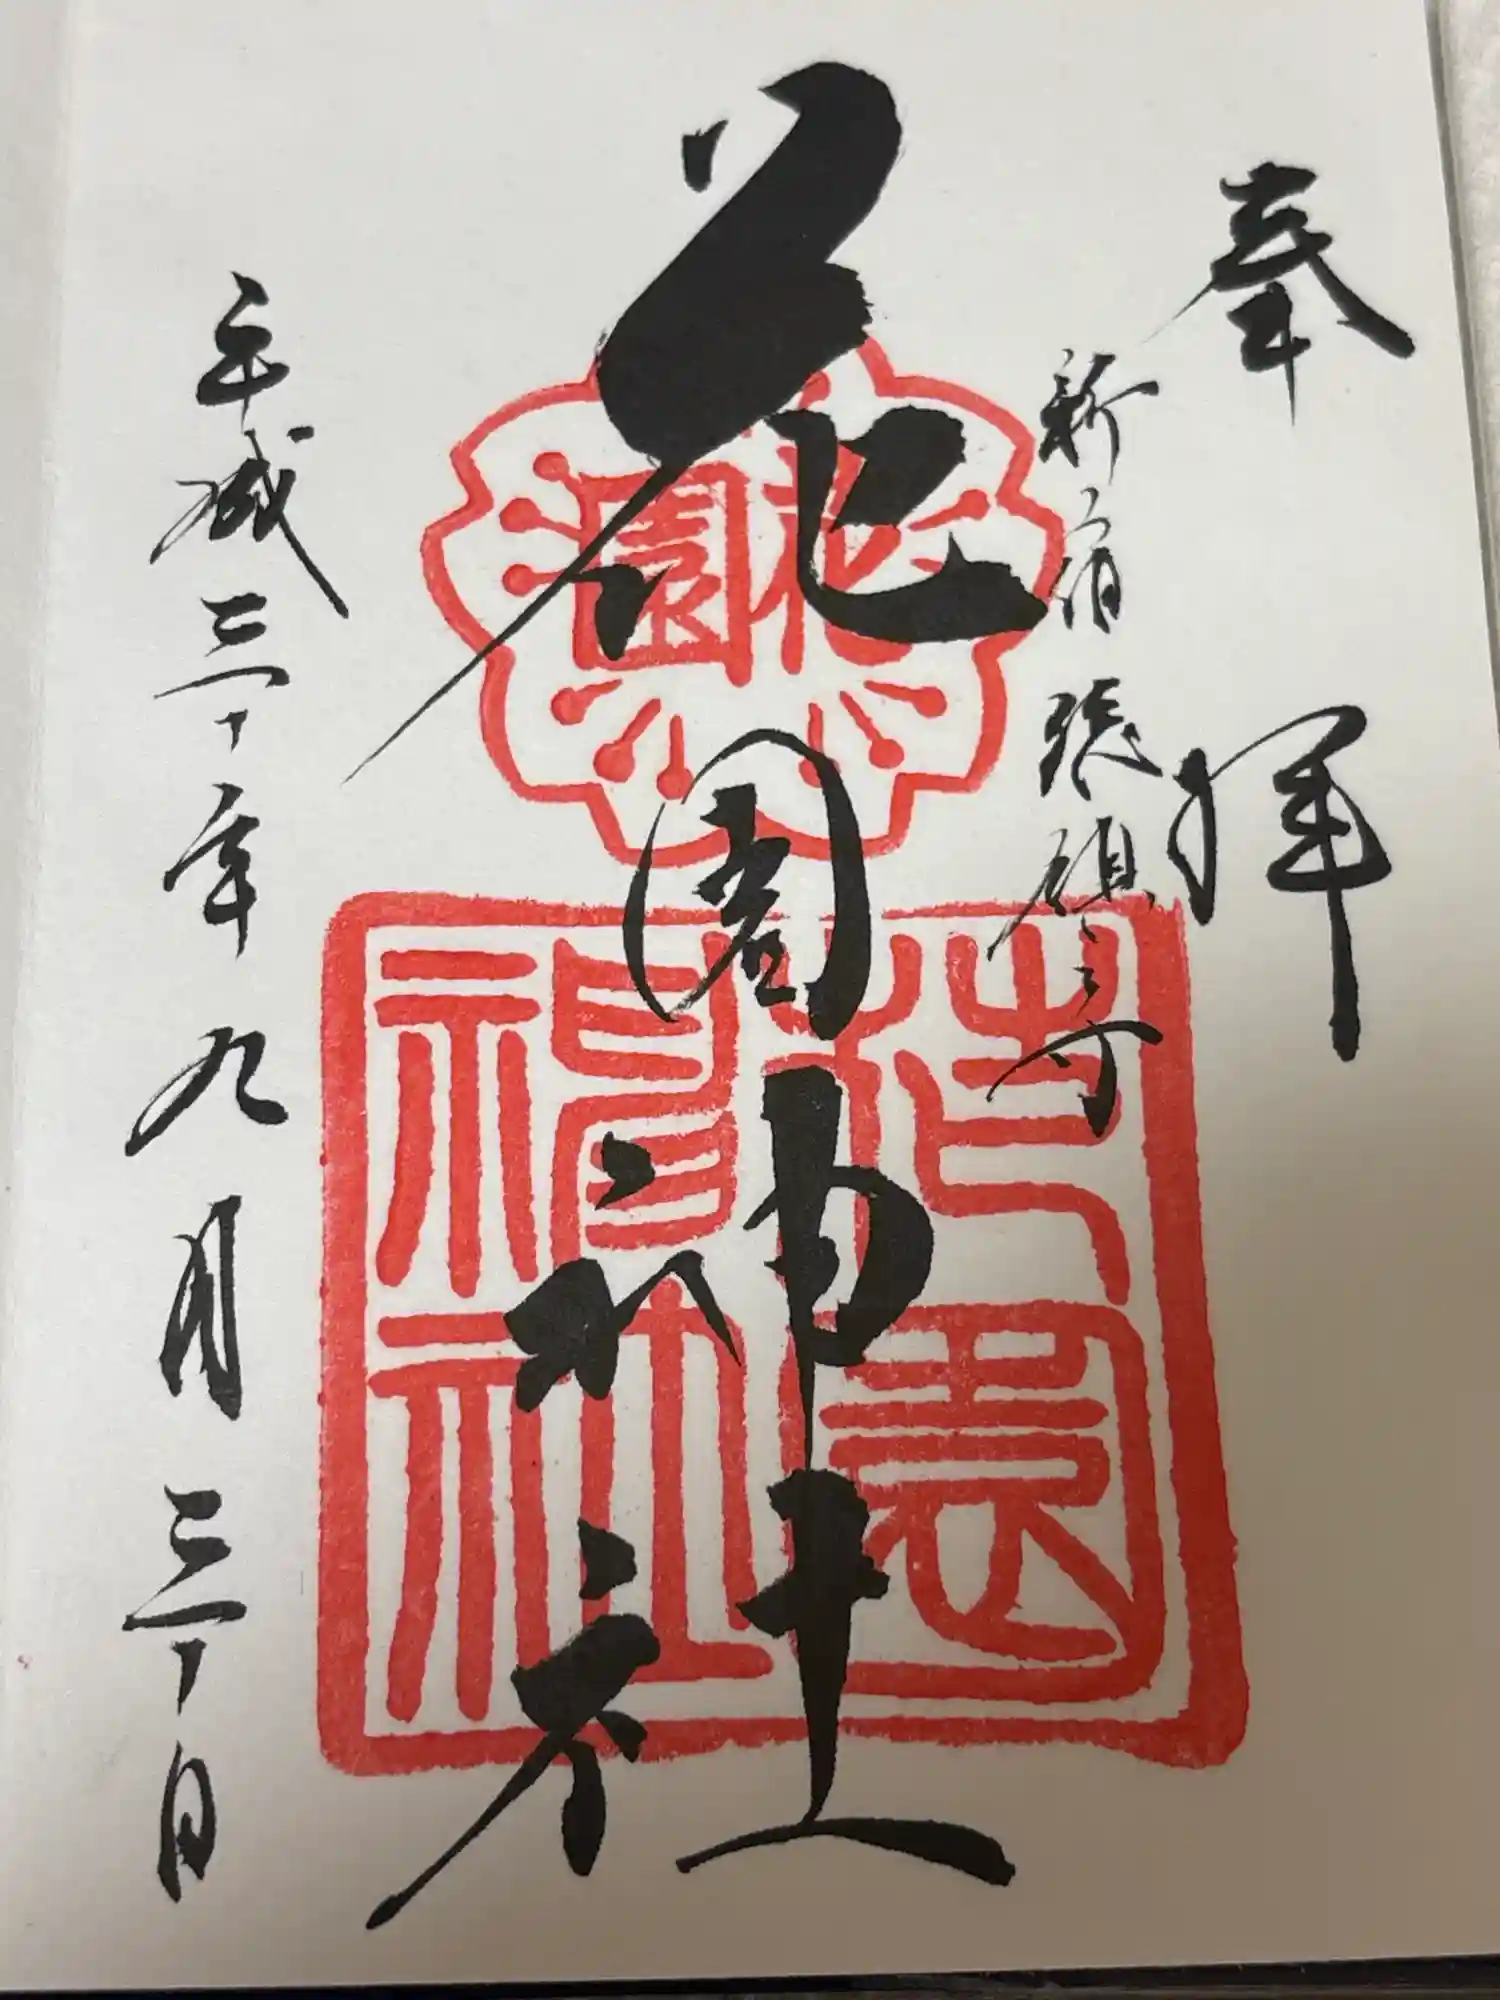 奉拝
新宿総鎮守
花園神社
花園
花園神社
平成三十年九月三十日